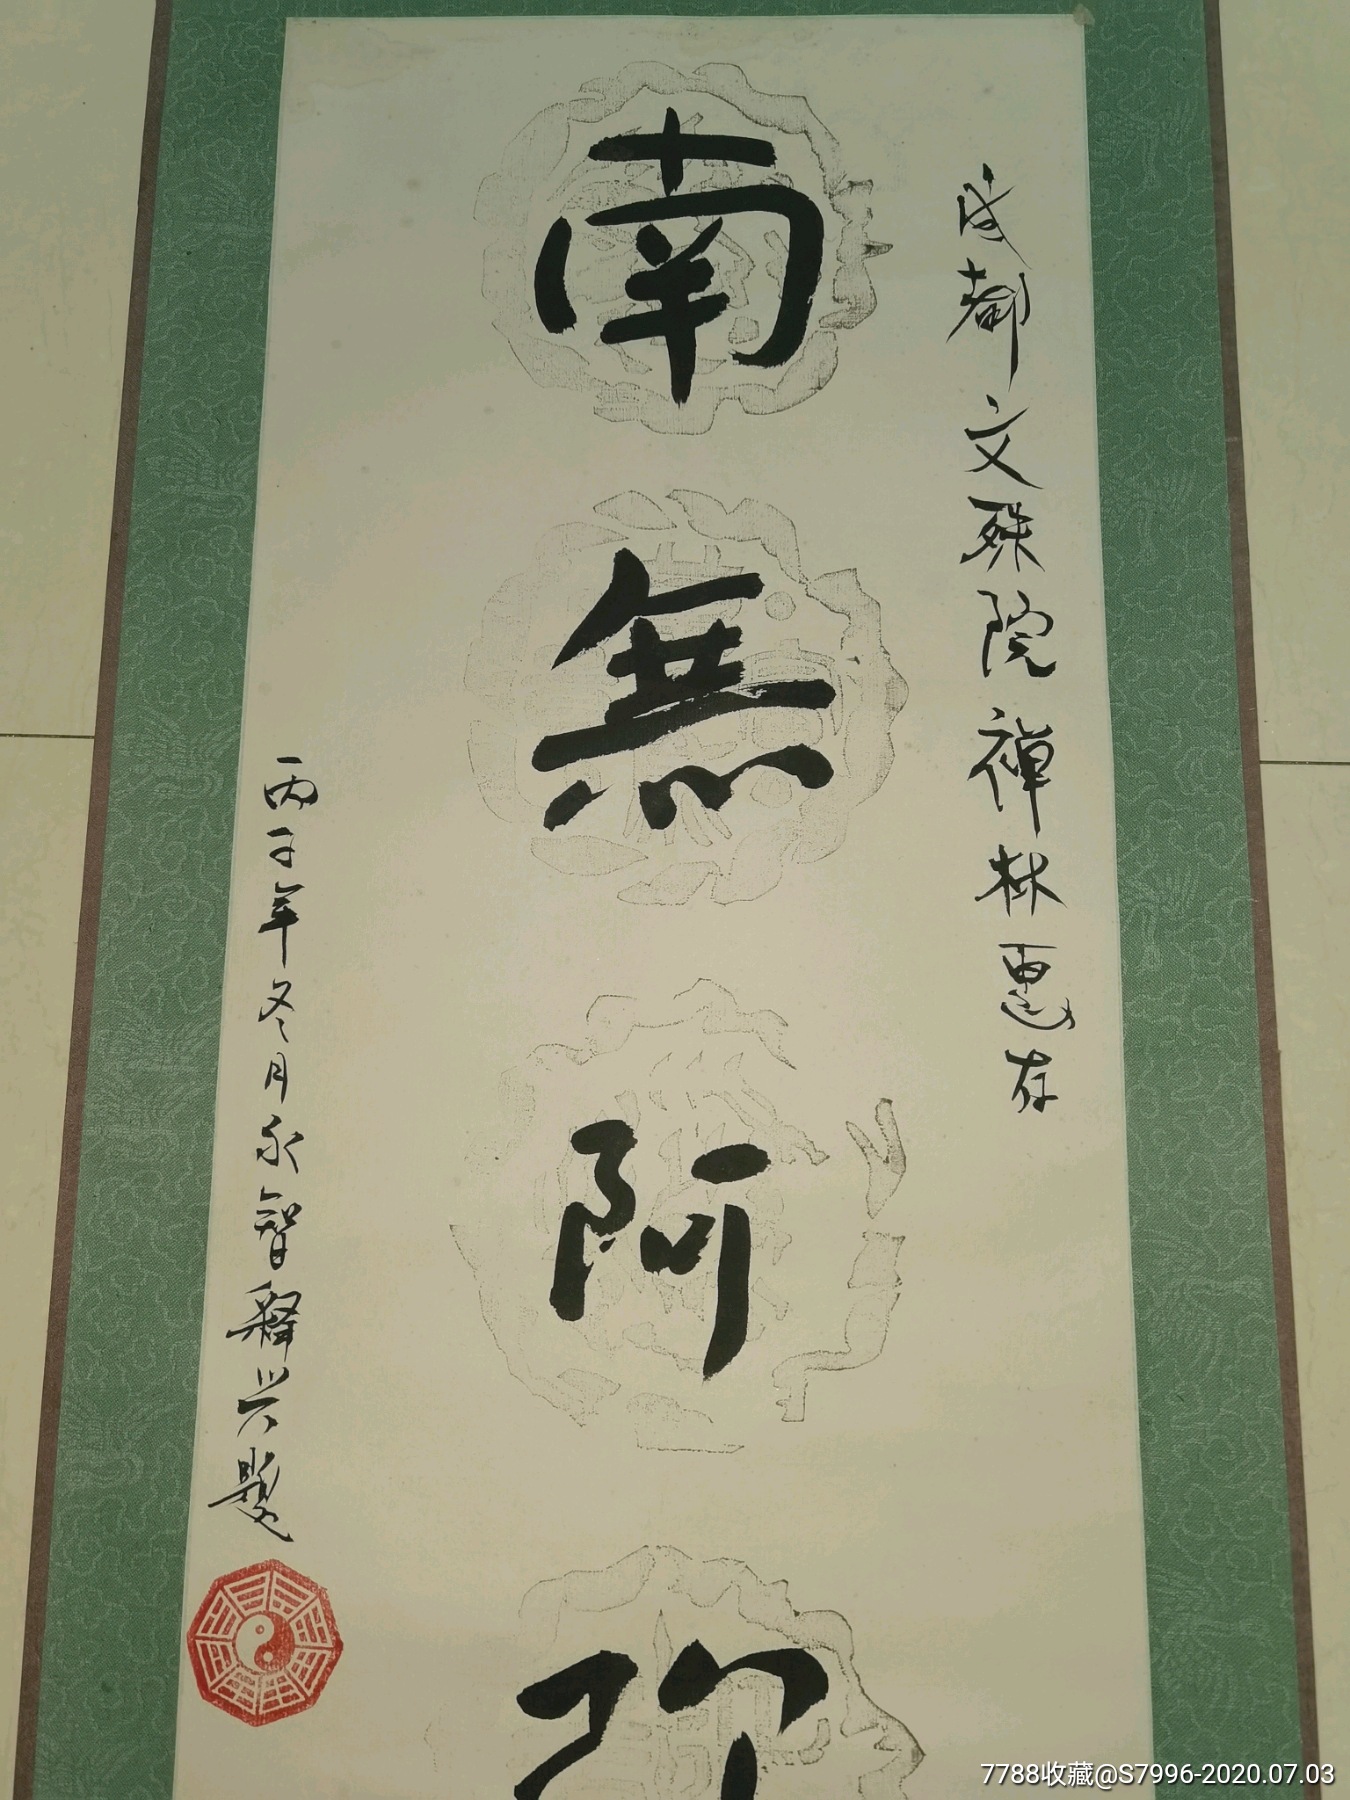 成都文殊院禅林惠存
南無阿弥
丙子年冬月永智释兴题
7788收藏@S7996-2020.07.03